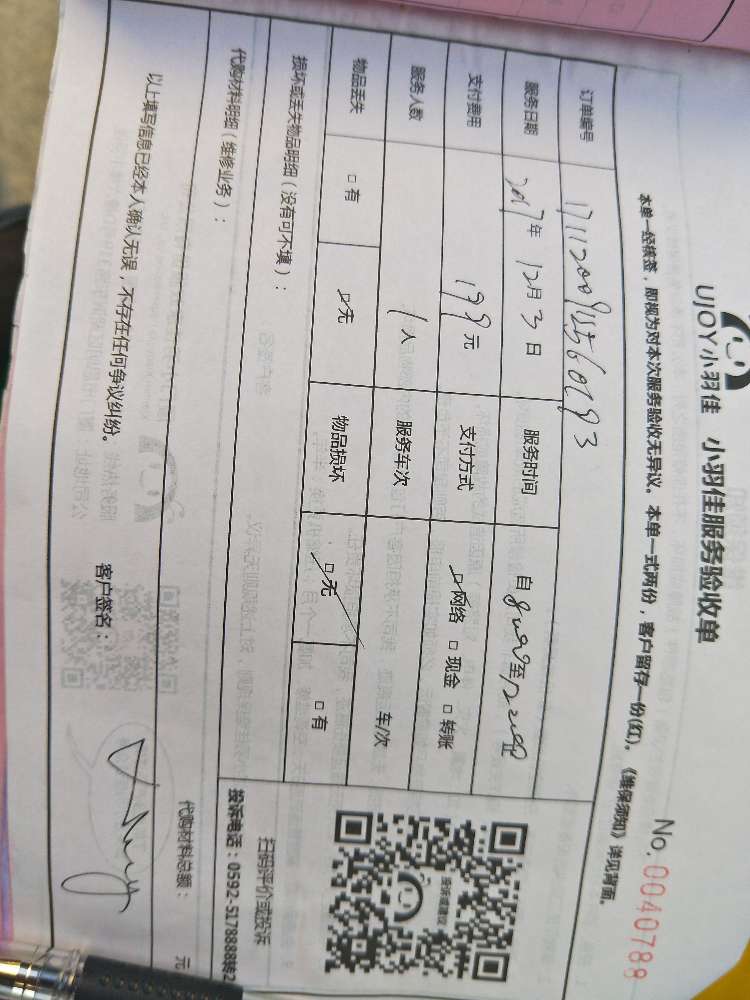 UJOY小羽佳 小羽佳服务验收单
No. 0040788
本单一经核签，即视为对本次服务验收无异议。本单一式两份，客户留存一份(红)。《维保须知》详见背面。
订单编号
服务日期 2017年 12月 3日 服务时间 自 8:00 至 12:00
支付费用 199元 支付方式 □网络 □现金 □转账
服务人数 1人 服务车次 车/次
物品丢失 □有 □无 物品损坏 □无 □有
损坏或丢失物品明细（没有可不填）：
代购材料明细（维修业务）：
代购材料总额： 元
扫码评价或投诉
投诉电话：0592-5178888转2
以上填写信息已经本人确认无误，不存在任何争议纠纷。 客户签名：